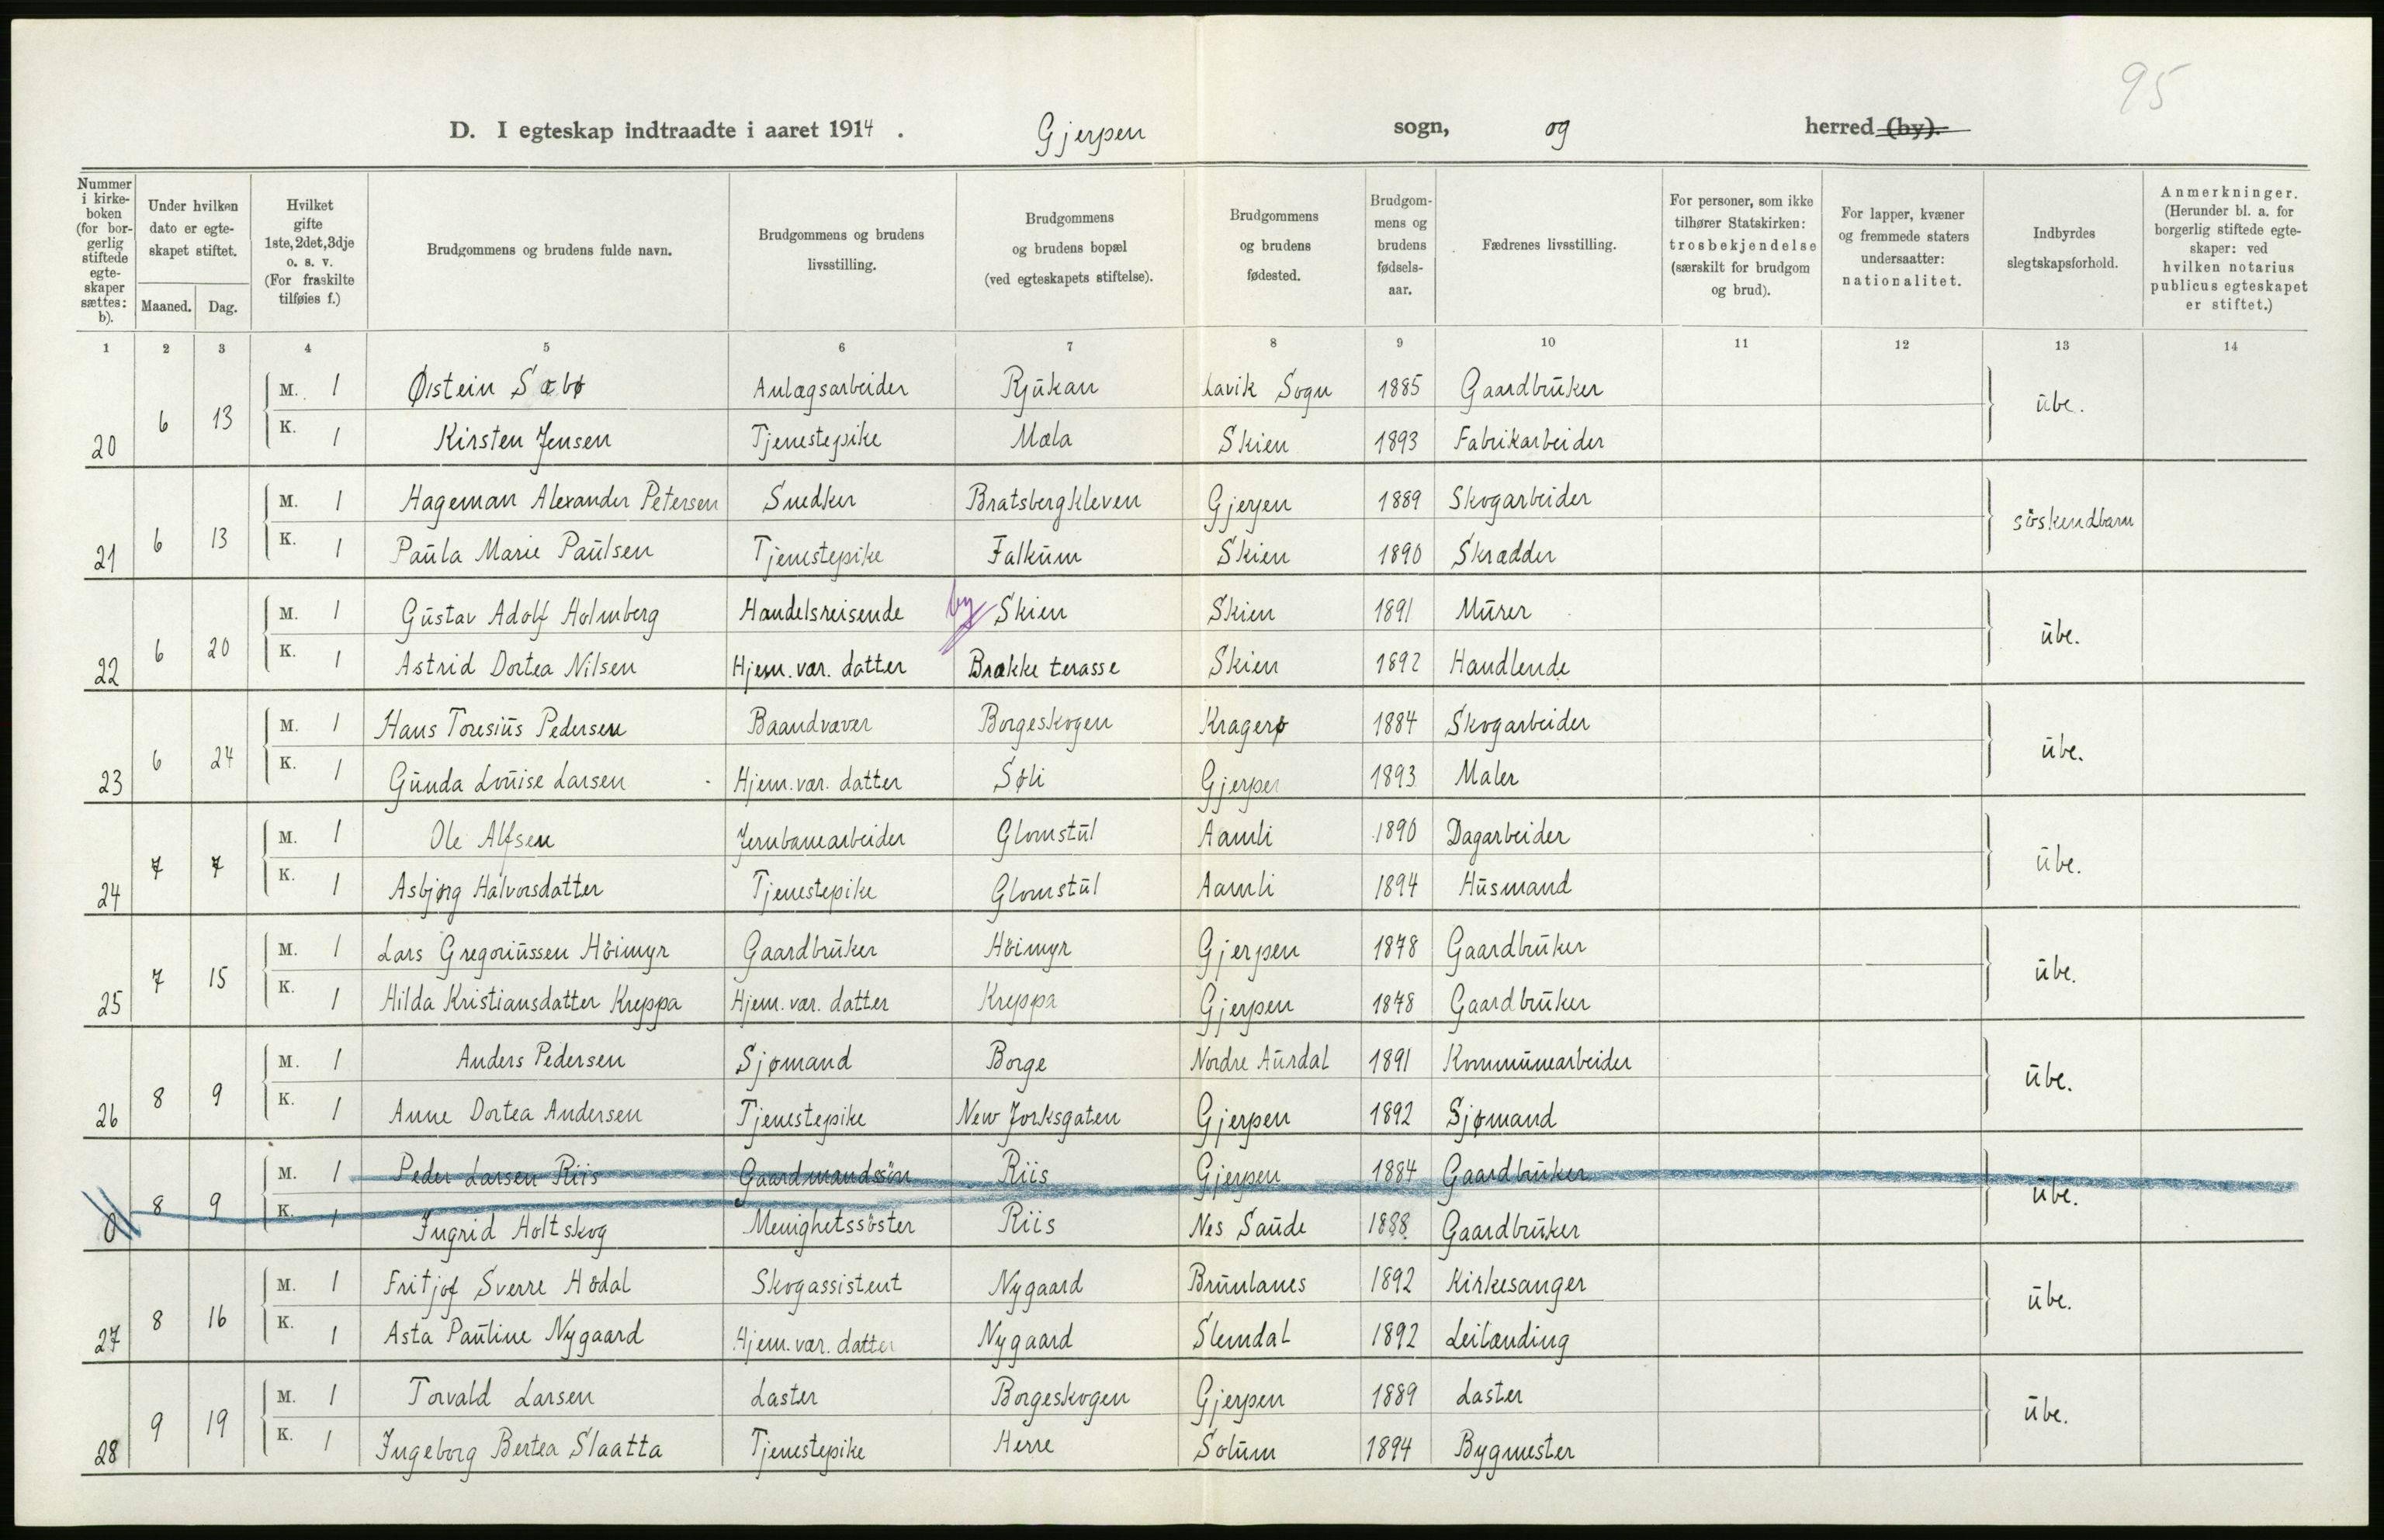 95
D. I egteskap indtraadte i aaret 1914. Gjerpen sogn, og herred (by).
Nummer i kirkeboken (for borgerlig stiftede egteskaper sættes: b).
Under hvilken dato er egteskapet stiftet.
Maaned. Dag.
Hvilket gifte 1ste, 2det, 3dje o. s. v. (For fraskilte tilføies f.)
Brudgommens og brudens fulde navn.
Brudgommens og brudens livsstilling.
Brudgommens og brudens bopæl (ved egteskapets stiftelse).
Brudgommens og brudens fødested.
Brudgommens og brudens fødselsaar.
Fædrenes livsstilling.
For personer, som ikke tilhører Statskirken: trosbekjendelse (særskilt for brudgom og brud).
For lapper, kvæner og fremmede staters undersaatter: nationalitet.
Indbyrdes slegtskapsforhold.
Anmerkninger. (Herunder bl. a. for borgerlig stiftede egteskaper: ved hvilken notarius publicus egteskapet er stiftet.)
1 2 3 4 5 6 7 8 9 10 11 12 13 14
M. 1 Øistein Sæbø Anlægsarbeider Rjūkan Lavik Sogn 1885 Gaardbrūker
20 6 13 ūbe.
K. 1 Kirsten Jensen Tjenestepike Mæla Skien 1893 Fabrikarbeider
M. 1 Hageman Alexander Petersen Snedker Bratsbergkleven Gjerpen 1889 Skogarbeider
21 6 13 söskendbarn
K. 1 Paūla Marie Paūlsen Tjenestepike Falkūm Skien 1890 Skrædder
M. 1 Gūstav Adolf Holmberg Handelsreisende by Skien Skien 1891 Mūrer
22 6 20 ūbe.
K. 1 Astrid Dortea Nilsen Hjem. vær. datter Brække terasse Skien 1892 Handlende
M. 1 Hans Toresiūs Pedersen Baandvæver Borgeskogen Kragerø 1884 Skogarbeider
23 6 24 ūbe.
K. 1 Gūnda Loūise Larsen Hjem. vær. datter Søli Gjerpen 1893 Maler
M. 1 Ole Alfsen Jernbanearbeider Glomstūl Aamli 1890 Dagarbeider
24 7 7 ūbe.
K. 1 Asbjørg Halvorsdatter Tjenestepike Glomstūl Aamli 1894 Hūsmand
M. 1 Lars Gregoriūssen Höimyr Gaardbrūker Höimyr Gjerpen 1878 Gaardbrūker
25 7 15 ūbe.
K. 1 Hilda Kristiansdatter Kreppa Hjem. vær. datter Kreppa Gjerpen 1878 Gaardbrūker
M. 1 Anders Pedersen Sjømand Borge Nordre Aūrdal 1891 Kommūnearbeider
26 8 9 ūbe.
K. 1 Anne Dortea Andersen Tjenestepike New Jorksgaten Gjerpen 1892 Sjømand
M. 1 Peder Larsen Riis Gaardmandssön Riis Gjerpen 1884 Gaardbrūker
0 8 9 ūbe.
K. 1 Ingrid Holtskog Menighetssöster Riis Nes Saūde 1888 Gaardbrūker
M. 1 Fritjof Sverre Hödal Skogassistent Nygaard Brūnlanes 1892 Kirkesanger
27 8 16 ūbe.
K. 1 Asta Paūline Nygaard Hjem. vær. datter Nygaard Slemdal 1892 Leilænding
M. 1 Torvald Larsen Laster Borgeskogen Gjerpen 1889 Laster
28 9 19 ūbe.
K. 1 Ingeborg Bertea Slaatta Tjenestepike Herre Solūm 1894 Bygmester